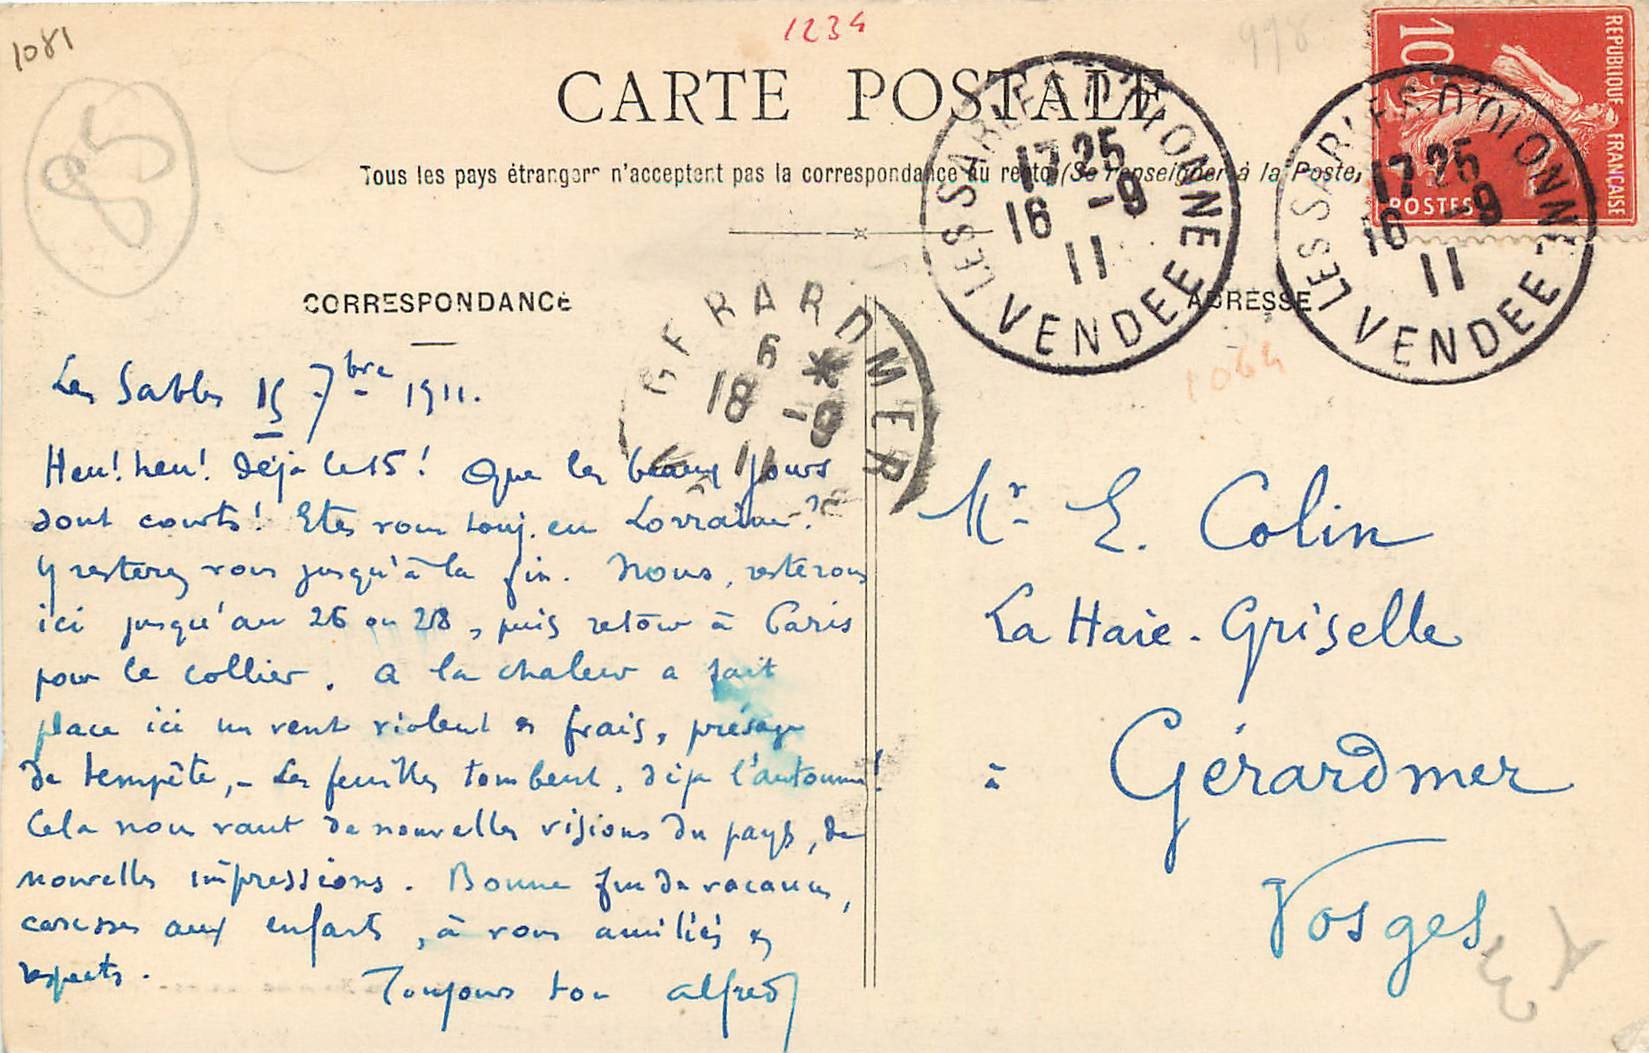 1081
1234
998
85
CARTE POSTALE
Tous les pays étrangers n'acceptent pas la correspondance au recto (Se renseigner à la Poste)
CORRESPONDANCE
ADRESSE
10c
REPUBLIQUE FRANÇAISE
POSTES
LES SABLES D'OLONNE
17 25
16 -9
11
VENDEE
LES SABLES D'OLONNE
17 25
16 -9
11
VENDEE
GERARDMER
6 *
18 -9
11
1064
Les Sables 15 7bre 1911.
Heu! heu! Déjà le 15! Que les beaux jours
sont courts! Etes vous touj. en Lorraine?
Y resterez vous jusqu'à la fin. Nous, resterons
ici jusqu'au 26 ou 28, puis retour à Paris
pour le collier. A la chaleur a fait
place ici un vent violent et frais, présage
de tempête,- Les feuilles tombent, déjà l'automne!
Cela nous vaut de nouvelles visions du pays, de
nouvelles impressions. Bonne fin de vacances,
caresses aux enfants, à vous amitiés et
respects.
Toujours ton Alfred
Mr E. Colin
La Haie-Griselle
à Gérardmer
Vosges